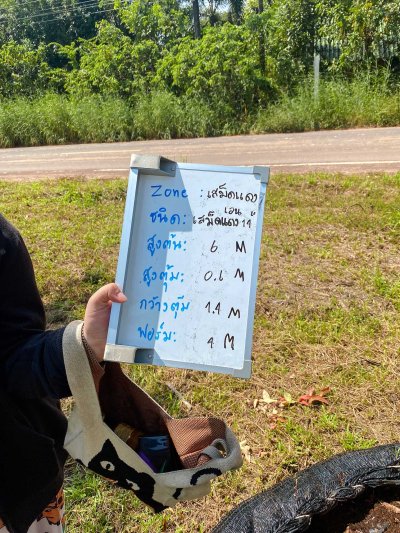 Zone : เสม็ดแดง
เอน
ชนิด: เสม็ดแดง 14
สูงต้น: 6 M
สูงตุ้ม: 0.6 M
กว้างตุ้ม 1.4 M
ฟอร์ม: 4 M